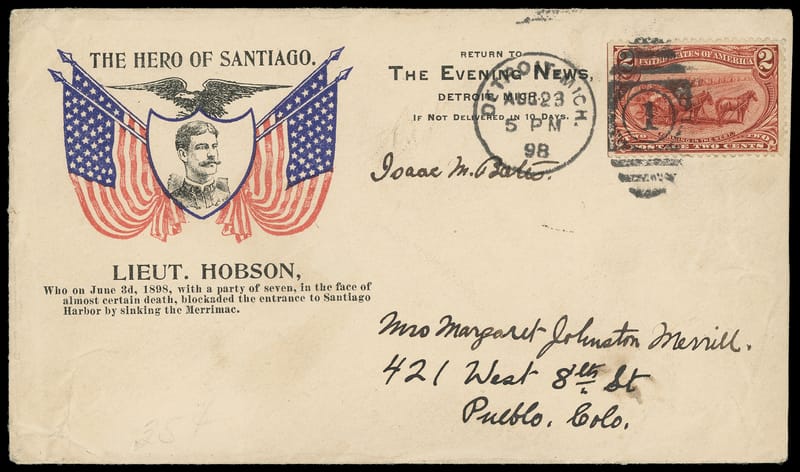 THE HERO OF SANTIAGO.
LIEUT. HOBSON,
Who on June 3d, 1898, with a party of seven, in the face of
almost certain death, blockaded the entrance to Santiago
Harbor by sinking the Merrimac.
RETURN TO
THE EVENING NEWS,
DETROIT, MICH.
IF NOT DELIVERED IN 10 DAYS.
Isaac M. Bates.
DETROIT, MICH.
AUG 23
5 PM
98
1
UNITED STATES OF AMERICA
2 2
FARMING IN THE WEST
POSTAGE TWO CENTS
Mrs Margaret Johnston Merrill.
421 West 8th St
Pueblo. Colo.
25